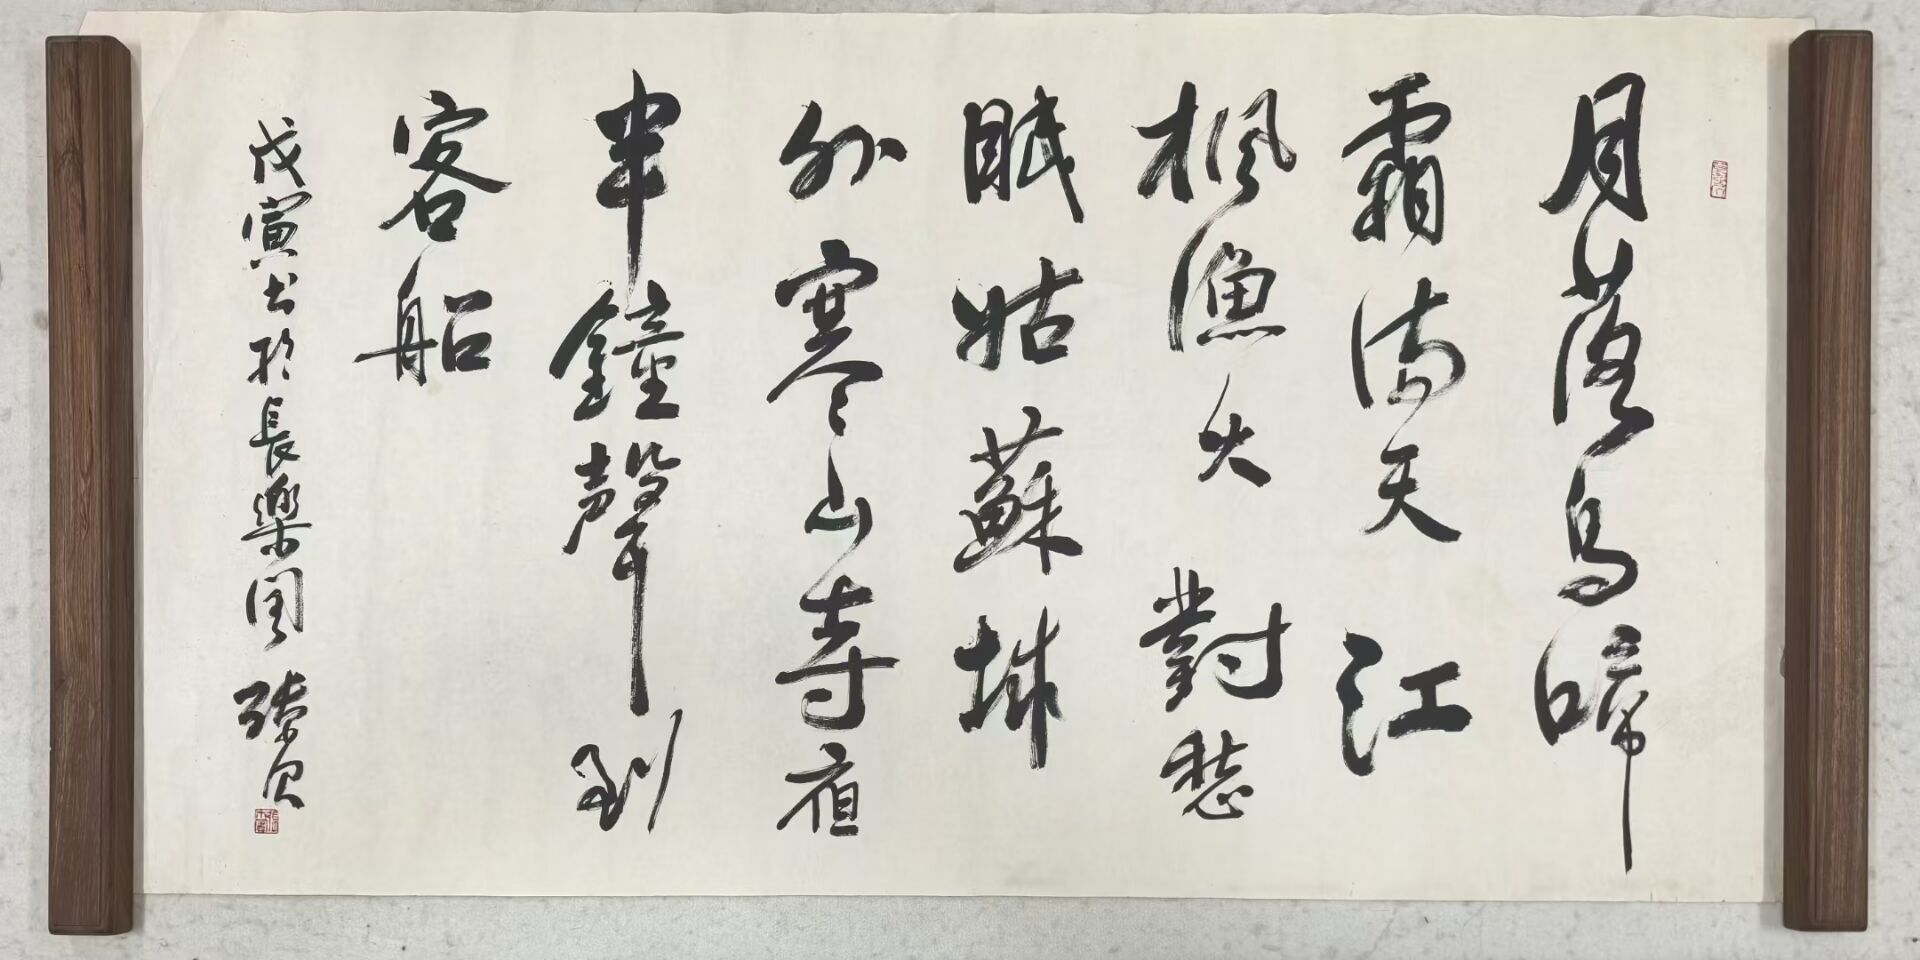 月落烏啼
霜滿天江
楓漁火對愁
眠姑蘇城
外寒山寺夜
半鐘聲到
客船
戊寅書於長樂